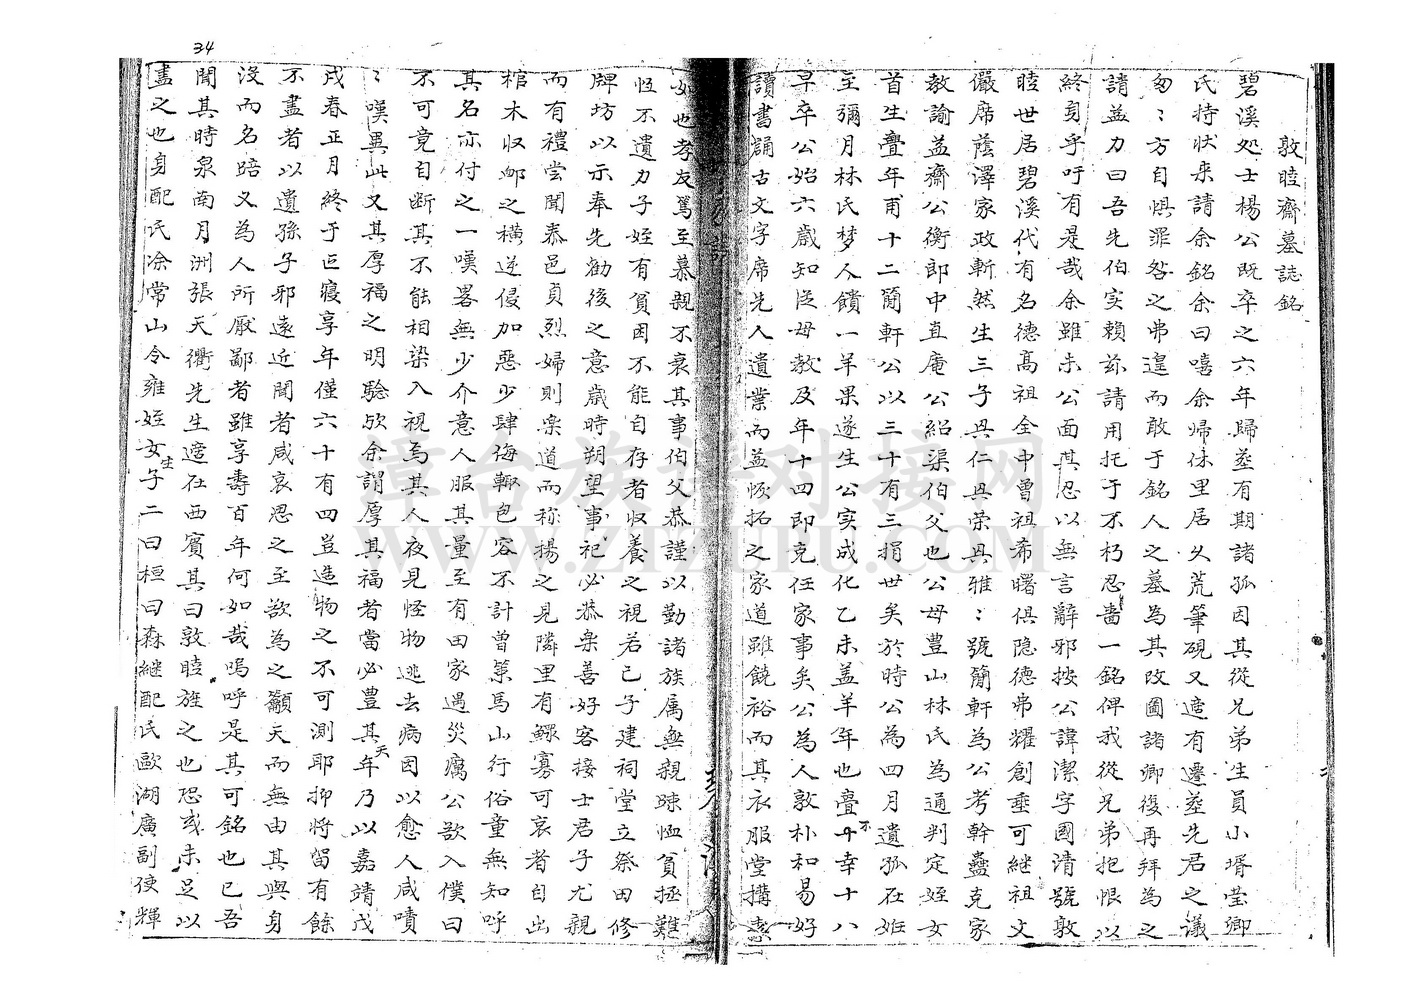 34
敦睦齋墓誌銘
碧溪処士楊公既卒之六年歸塟有期諸孤因其從兄弟生員小壻瑩卿
氏持狀来請余銘余曰嘻余歸休里居久荒筆硯又適有遷塟先君之議
匆〻方自惧罪咎之弗遑而敢于銘人之墓為其改圖諸卿復再拜為之
請益力曰吾先伯实賴茲請用托于不朽忍嗇一銘俾我從兄弟抱恨以
終身乎吁有是哉余雖未公面其忍以無言辭邪按公諱潔字國清號敦
睦世居碧溪代有名德高祖全中曾祖希曙俱隐德弗耀創垂可継祖文
儼席蔭澤家政斬然生三子具仁具荣具雅〻號簡軒為公考幹蠱克家
教諭益齋公衡郎中直庵公紹渠伯父也公母豊山林氏為通判定姪女
首生疊年甫十二簡軒公以三十有三捐世矣於時公為四月遺孤在姙
至彌月林氏梦人饋一羊果遂生公实成化乙未盖羊年也疊不幸十八
早卒公始六歲知從母教及年十四即克任家事矣公為人敦朴和易好
讀書誦古文字席先人遺業而益恢拓之家道雖饒裕而其衣服堂搆素
如也孝友篤至慕親不衰其事伯父恭謹以勤諸族属無親踈恤貧拯難
恒不遺力子姪有貧困不能自存者収養之視若己子建祠堂立祭田修
牌坊以示奉先勸後之意歲時朔望事祀必恭樂善好客接士君子尤親
而有禮尝聞泰邑貞烈婦則樂道而称揚之見隣里有鰥寡可哀者自出
棺木収䘏之横逆侵加惡少肆侮輙包容不計曽策馬山行俗童無知呼
其名亦付之一嘆畧無少介意人服其量至有田家遇災癘公欲入僕曰
不可竟自断其不能相染入視為其人夜見怪物逃去病因以愈人咸嘖
〻嘆異此又其厚福之明驗欤余謂厚其福者當必豊其年天乃以嘉靖戊
戌春正月終于正寝享年僅六十有四豈造物之不可測耶抑将畱有餘
不盡者以遺孫子邪遠近聞者咸哀思之至欲為之籲天而無由其與身
沒而名踣又為人所厭鄙者雖享壽百年何如哉嗚呼是其可銘也已吾
聞其時泉南月洲張天衢先生適在西賓其曰敦睦旌之也恐或未足以
盡之也身配氏凃常山令雍姪女生子二曰桓曰森継配氏歐湖廣副使輝
潭台族譜对接网
WWW.ZTZUPU.COM